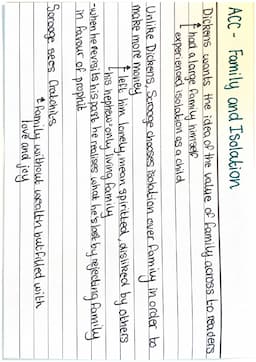 ACC - Family and Isolation
Dickens wants the idea of the value of family across to readers
↳ had a large family himself
experienced isolation as a child
Unlike Dickens, Scrooge chooses isolation over family in order to
make more money
↳ left him lonely, mean spiritted, disliked by others
his nephew only living family
- when he revisits his past he realises what he's lost by rejecting family
in favour of profit
Scrooge sees Cratchits
↳ family without wealth but filled with
love and joy